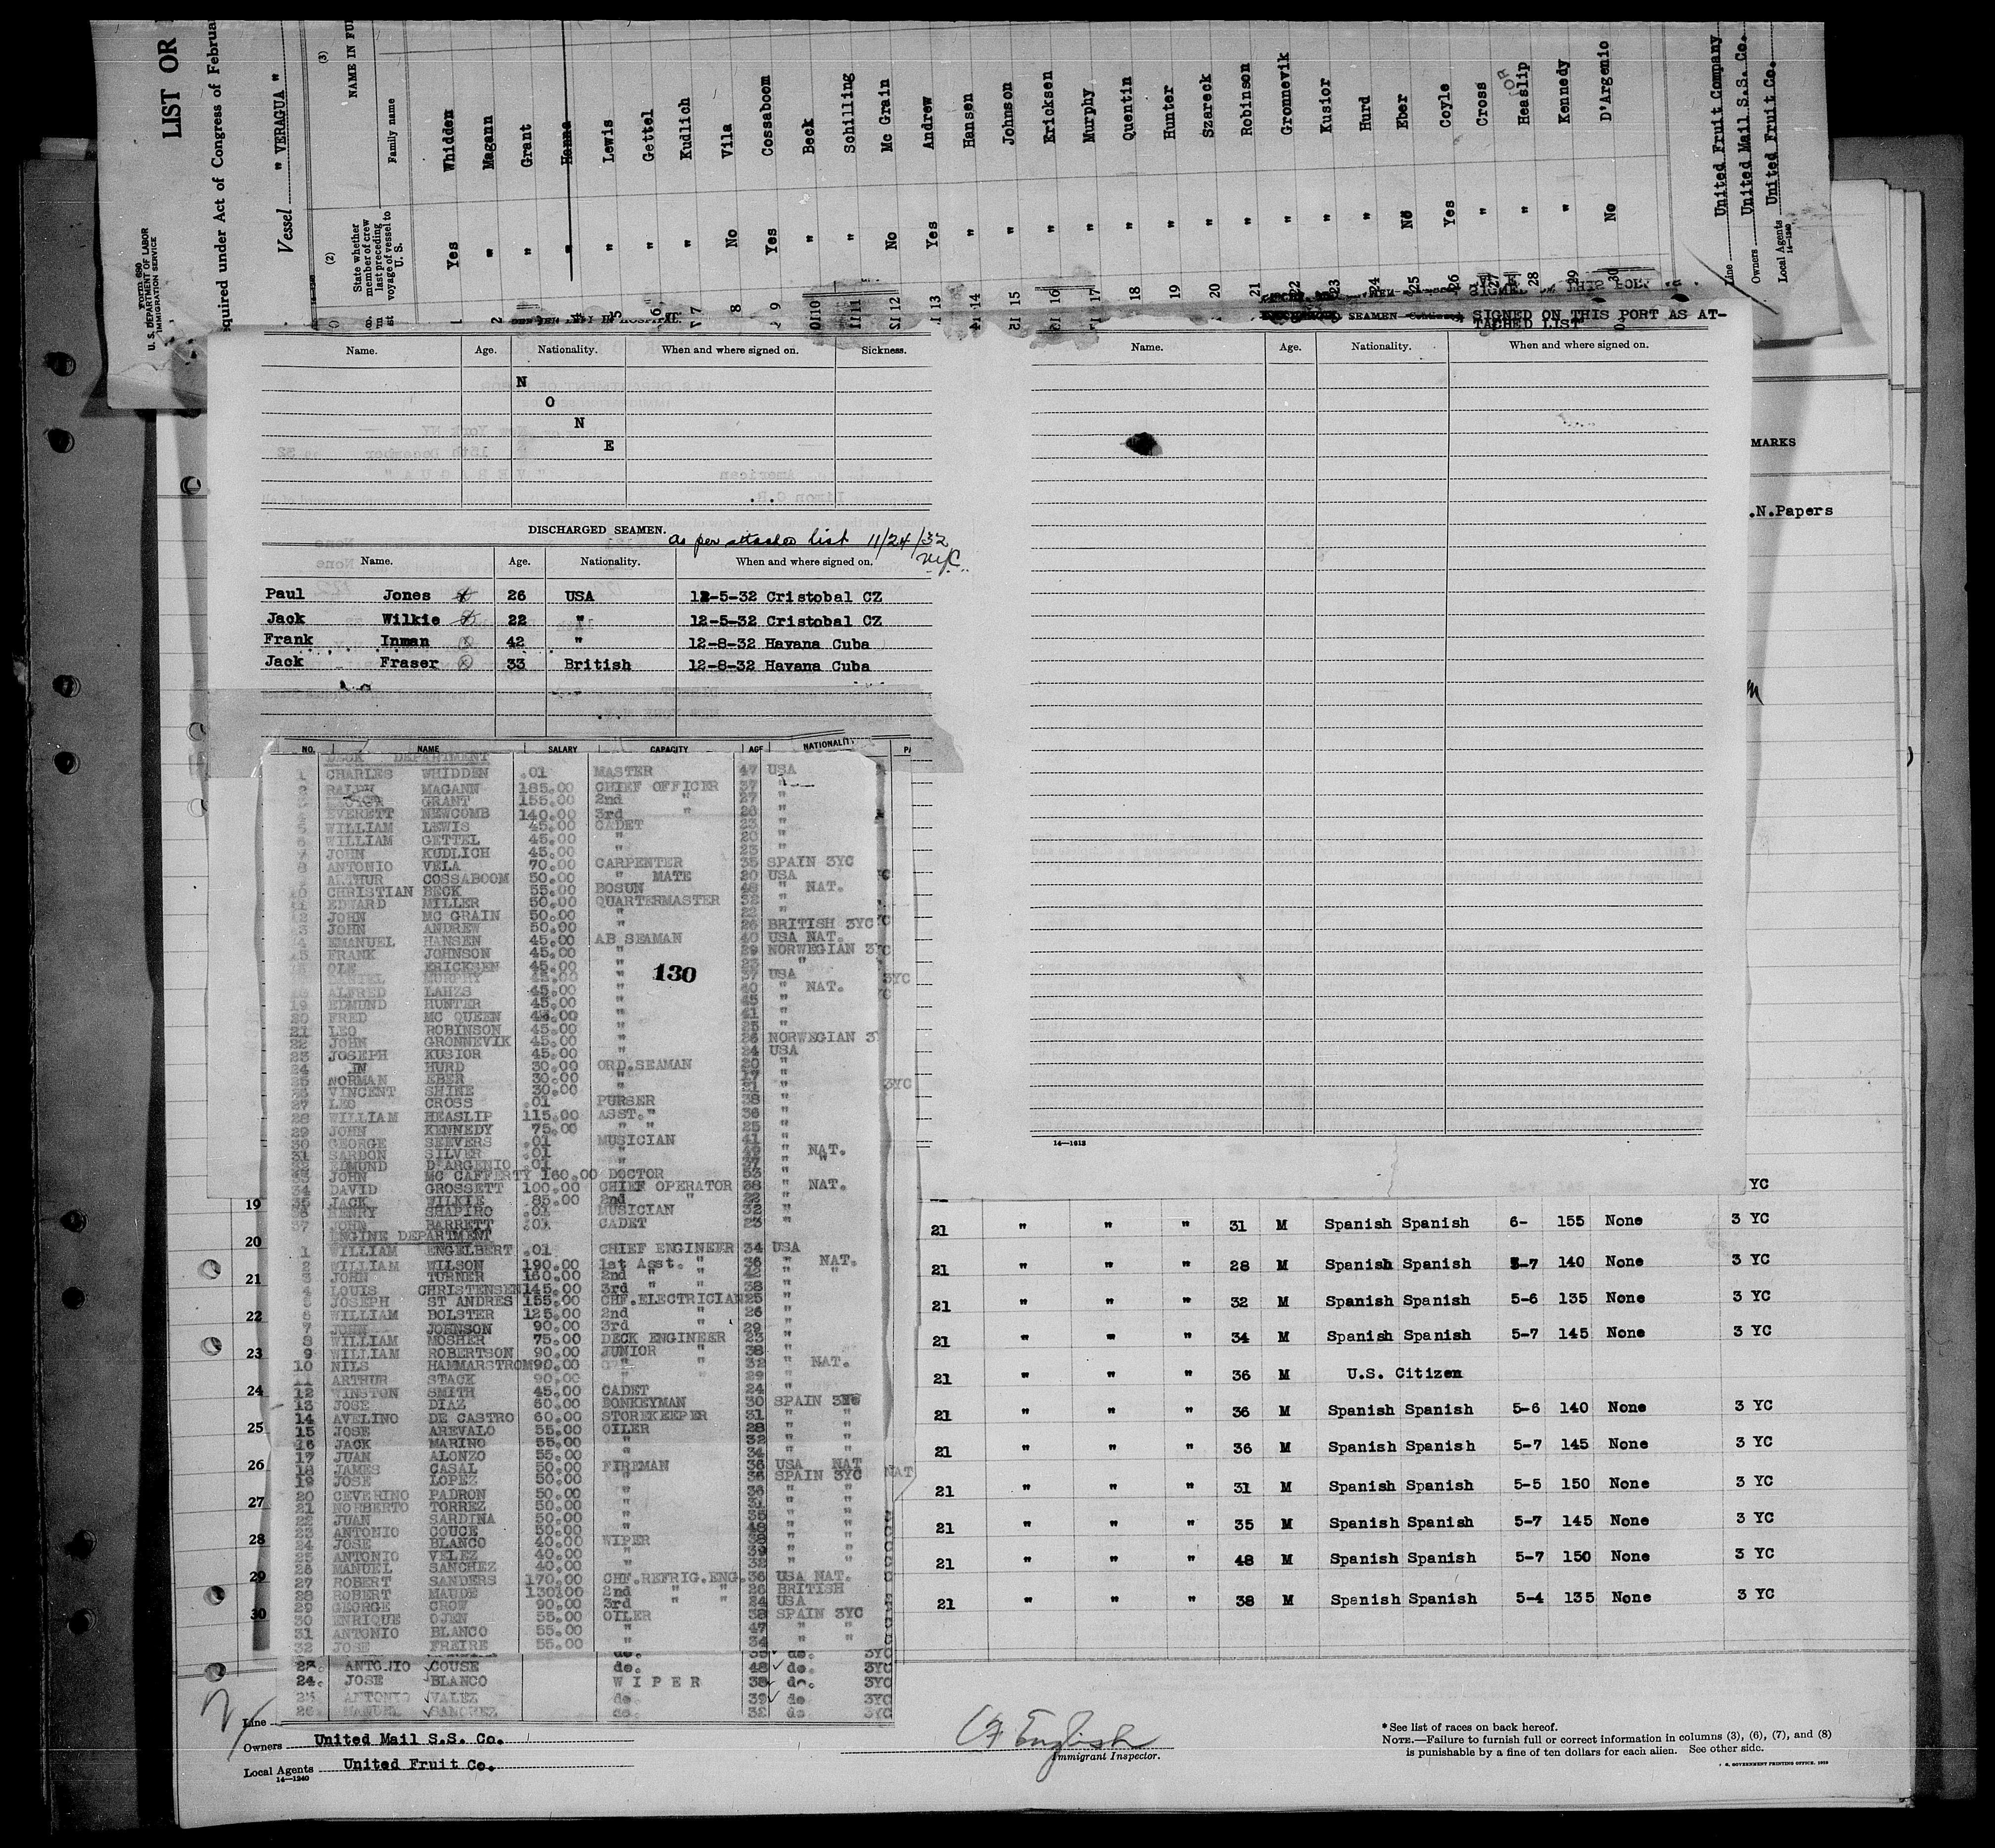 LIST OR
Form 680
U. S. DEPARTMENT OF LABOR
IMMIGRATION SERVICE
equired under Act of Congress of Februa
Vessel " VERAGUA "
(2) (3)
State whether member of crew last preceding voyage of vessel to U. S.
NAME IN FU
Family name
1 Yes Whidden
2 " Magann
" Grant
" Hanna
5 " Lewis
6 " Gettel
7 " Kudlich
8 No Vila
9 Yes Cossaboom
10 " Beck
11 " Schilling
12 No Mc Grain
13 Yes Andrew
14 " Hansen
15 " Johnson
16 " Ericksen
17 " Murphy
18 " Quentin
19 " Hunter
20 " Szareck
21 " Robinson
22 " Gronnevik
23 " Kusior
24 " Hurd
25 No Eber
26 Yes Coyle
27 " Cross
28 " Heaslip
29 " Kennedy
30 No D'Argenio
Line United Fruit Company
Owners United Mail S.S. Co.
Local Agents United Fruit Co.
14—1240
SEAMEN SIGNED ON THIS PORT AS AT-
TACHED LIST
Name. Age. Nationality. When and where signed on. Sickness.
N
O
N
E
DISCHARGED SEAMEN. as per attached list 11/24/32
NYC
Name. Age. Nationality. When and where signed on.
Paul Jones 26 USA 12-5-32 Cristobal CZ
Jack Wilkie 22 " 12-5-32 Cristobal CZ
Frank Inman 42 " 12-8-32 Havana Cuba
Jack Fraser 33 British 12-8-32 Havana Cuba
Name. Age. Nationality. When and where signed on.
14—1613
MARKS
.N.Papers
NO. NAME SALARY CAPACITY AGE NATIONALITY
DECK DEPARTMENT
1 CHARLES WHIDDEN .01 MASTER 47 USA
2 RALPH MAGANN 185.00 CHIEF OFFICER 37 "
GRANT 155.00 2nd " 27 "
EVERETT NEWCOMB 140.00 3rd " 26 "
5 WILLIAM LEWIS 45.00 CADET 23 "
6 WILLIAM GETTEL 45.00 " 20 "
7 JOHN KUDLICH 45.00 " 23 "
8 ANTONIO VELA 70.00 CARPENTER 35 SPAIN 3YC
ARTHUR COSSABOOM 50.00 " MATE 20 USA
10 CHRISTIAN BECK 55.00 BOSUN 48 " NAT.
11 EDWARD MILLER 50.00 QUARTERMASTER 32 "
12 JOHN MC GRAIN 50.00 " 22 "
13 JOHN ANDREW 50.00 " 26 BRITISH 3YC
14 EMANUEL HANSEN 45.00 AB SEAMAN 40 USA NAT.
15 FRANK JOHNSON 45.00 " 29 NORWEGIAN 3YC
OLE ERICKSEN 45.00 " 23 "
MURPHY 45.00 " 37 USA
130
ALFRED LAHZS 45.00 " 40 " NAT.
19 EDMUND HUNTER 45.00 " 45 "
20 FRED MC QUEEN 45.00 " 41 "
21 LEO ROBINSON 45.00 " 25 "
22 JOHN GRONNEVIK 45.00 " 26 NORWEGIAN 3
23 JOSEPH KUSIOR 45.00 " 24 USA
24 HURD 30.00 ORD.SEAMAN 20 "
25 NORMAN EBER 30.00 " 17 "
VINCENT SHINE 30.00 " 21 "
27 LEO CROSS .01 PURSER 38 "
28 WILLIAM HEASLIP 115.00 ASST." 36 "
29 JOHN KENNEDY 75.00 " " 25 "
30 GEORGE SEEVERS .01 MUSICIAN 41 "
31 SARDON SILVER .01 " " NAT.
32 EDMUND D'ARGENIO .01 " 37 " "
33 JOHN MC CAFFERTY 160.00 DOCTOR 53 "
34 DAVID GROSSETT 100.00 CHIEF OPERATOR 28 " NAT.
35 JACK WILKIE 85.00 2nd " 22 "
36 HENRY SHAPIRO .01 MUSICIAN 32 "
37 JOHN BARRETT .01 CADET 23 "
ENGINE DEPARTMENT
1 WILLIAM ENGELBERT .01 CHIEF ENGINEER 34 USA
2 WILLIAM WILSON 190.00 1st Asst. " 36 " NAT.
3 JOHN TURNER 160.00 2nd " " 42 " "
4 LOUIS CHRISTENSEN 145.00 3rd " " 38 "
5 JOSEPH ST ANDRES 155.00 CHF.ELECTRICIAN 25 "
6 WILLIAM BOLSTER 125.00 2nd " 26 "
7 JOHN JOHNSON 90.00 3rd " 29 "
8 WILLIAM MOSHER 75.00 DECK ENGINEER 23 "
9 WILLIAM ROBERTSON 90.00 JUNIOR " 38 "
10 NILS HAMMARSTROM 90.00 " " 32 " NAT.
11 ARTHUR STACK 90.00 " " 29 "
12 WINSTON SMITH 45.00 CADET 24 "
13 JOSE DIAZ 60.00 DONKEYMAN 30 SPAIN 3YC
14 AVELINO DE CASTRO 60.00 STOREKEEPER 31 " "
15 JOSE AREVALO 55.00 OILER 28 " "
16 JACK MARINO 55.00 " 32 " "
17 JUAN ALONZO 55.00 " 34 " "
18 JAMES CASAL 50.00 FIREMAN 36 USA NAT
19 JOSE LOPEZ 50.00 " 36 SPAIN 3YC
20 CEVERINO PADRON 50.00 " 36 " "
21 NORBERTO TORREZ 50.00 " 31 " "
22 JUAN SARDINA 50.00 " 35 " "
23 ANTONIO COUCE 50.00 " 48 " "
24 JOSE BLANCO 40.00 WIPER 38 " "
25 ANTONIO VELEZ 40.00 " 39 " "
26 MANUEL SANCHEZ 40.00 " 32 " "
27 ROBERT SANDERS 170.00 CHF.REFRIG.ENG. 36 USA NAT.
28 ROBERT MAUDE 130100 2nd " " 26 BRITISH
29 GEORGE CROW 90.00 3rd " " 24 USA
30 ENRIQUE OJEN 55.00 OILER 38 SPAIN 3YC
31 ANTONIO BLANCO 55.00 " 47 " "
32 JOSE FREIRE 55.00 " 34 " "
do. 35 do. 3YC
23. ANTONIO COUSE do. 48 do. 3YC
24. JOSE BLANCO WIPER 38 do. 3YC
25 ANTONIO VALEZ do 39 do 3YC
26 MANUEL SANCHEZ do. 32 do 3YC
19 YC
20 21 " " " 31 M Spanish Spanish 6- 155 None 3 YC
21 21 " " " 28 M Spanish Spanish 5-7 140 None 3 YC
22 21 " " " 32 M Spanish Spanish 5-6 135 None 3 YC
23 21 " " " 34 M Spanish Spanish 5-7 145 None 3 YC
24 21 " " " 36 M U.S. Citizen
25 21 " " " 36 M Spanish Spanish 5-6 140 None 3 YC
26 21 " " " 36 M Spanish Spanish 5-7 145 None 3 YC
27 21 " " " 31 M Spanish Spanish 5-5 150 None 3 YC
28 21 " " " 35 M Spanish Spanish 5-7 145 None 3 YC
29 21 " " " 48 M Spanish Spanish 5-7 150 None 3 YC
30 21 " " " 38 M Spanish Spanish 5-4 135 None 3 YC
Line
Owners United Mail S.S. Co.
Local Agents United Fruit Co.
14—1240
English
Immigrant Inspector.
*See list of races on back hereof.
NOTE.—Failure to furnish full or correct information in columns (3), (6), (7), and (8)
is punishable by a fine of ten dollars for each alien. See other side.
GOVERNMENT PRINTING OFFICE. 1928